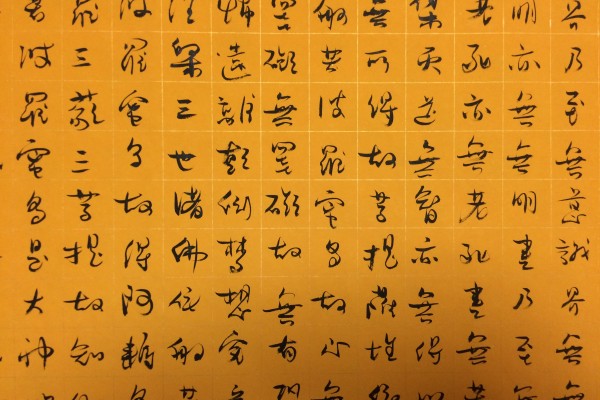 界乃至無意識界無無
明亦無無明盡乃至無
老死亦無老死盡無苦
集滅道無智亦無得
無所得故菩提薩埵依
般若波羅蜜多故心無
罣礙無罣礙故無有恐
怖遠離顛倒夢想究竟
涅槃三世諸佛依般若
波羅蜜多故得阿耨多
羅三藐三菩提故知般
若波羅蜜多是大神